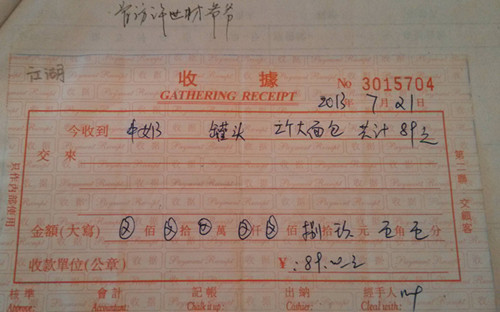 江湖
收據
GATHERING RECEIPT
No 3015704
2013年 7月 21日
今收到 牛奶 罐头 三个大面包 共计 89元
交來
金額(大寫) ⊗佰 ⊗拾 ⊗萬 ⊗仟 ⊗佰 捌拾玖元 零角 零分
收款單位(公章) ¥: 89.00元
只作內部使用
第二聯 交顧客
核準 會計 記帳 出納 經手人
Approve: Accountant: Chalk it up: Cashier: Deal with: